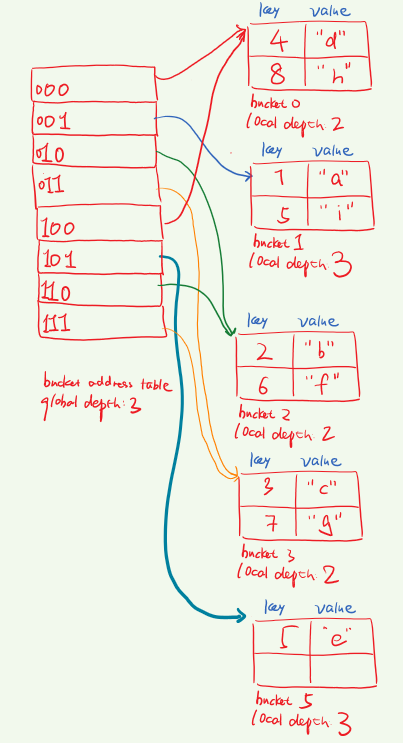 000
001
010
011
100
101
110
111
bucket address table
global depth: 3
key value
4 "d"
8 "h"
bucket 0
local depth 2
key value
1 "a"
5 "i"
bucket 1
local depth 3
key value
2 "b"
6 "f"
bucket 2
local depth 2
key value
3 "c"
7 "g"
bucket 3
local depth 2
key value
5 "e"
bucket 5
local depth 3